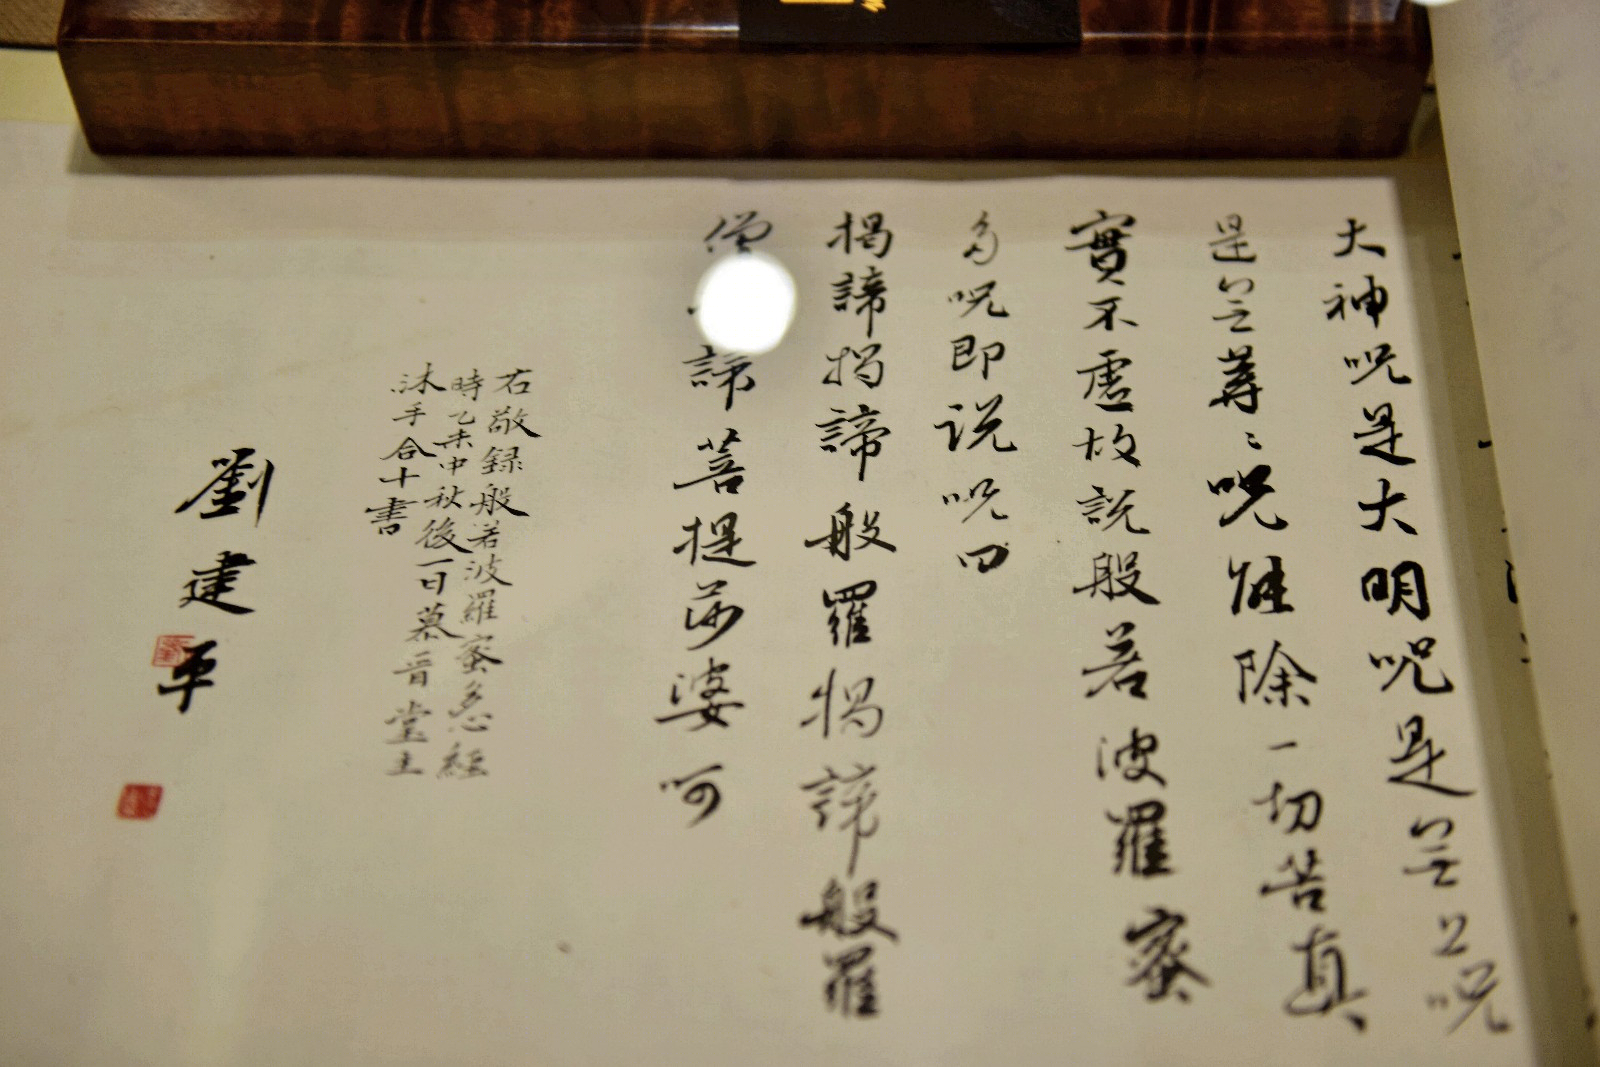 大神呪是大明呪是无上呪
是无等〻呪能除一切苦真
實不虛故説般若波羅蜜
多呪即说呪曰
揭諦揭諦般羅揭諦般羅
僧諦菩提莎婆呵
右敬録般若波羅蜜多心經
時乙未中秋後一日慕晋堂主
沐手合十書
劉建平